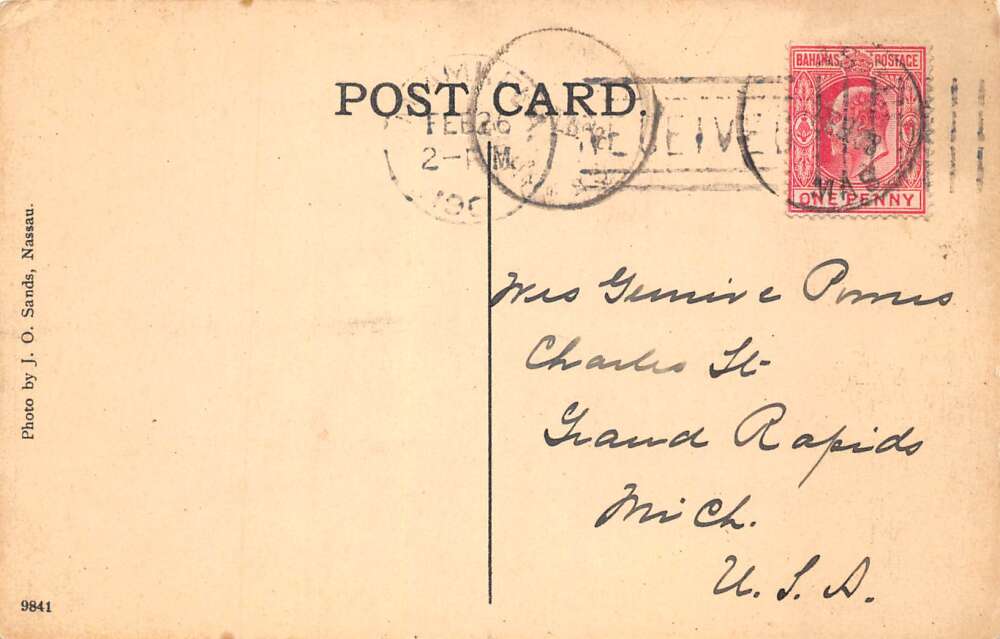 POST CARD.
BAHAMAS POSTAGE
ONE PENNY
FEB 26
2-
M
190
RECEIVED
MAS
Photo by J. O. Sands, Nassau.
Charles St
Grand Rapids
Mich.
U. S. A.
9841